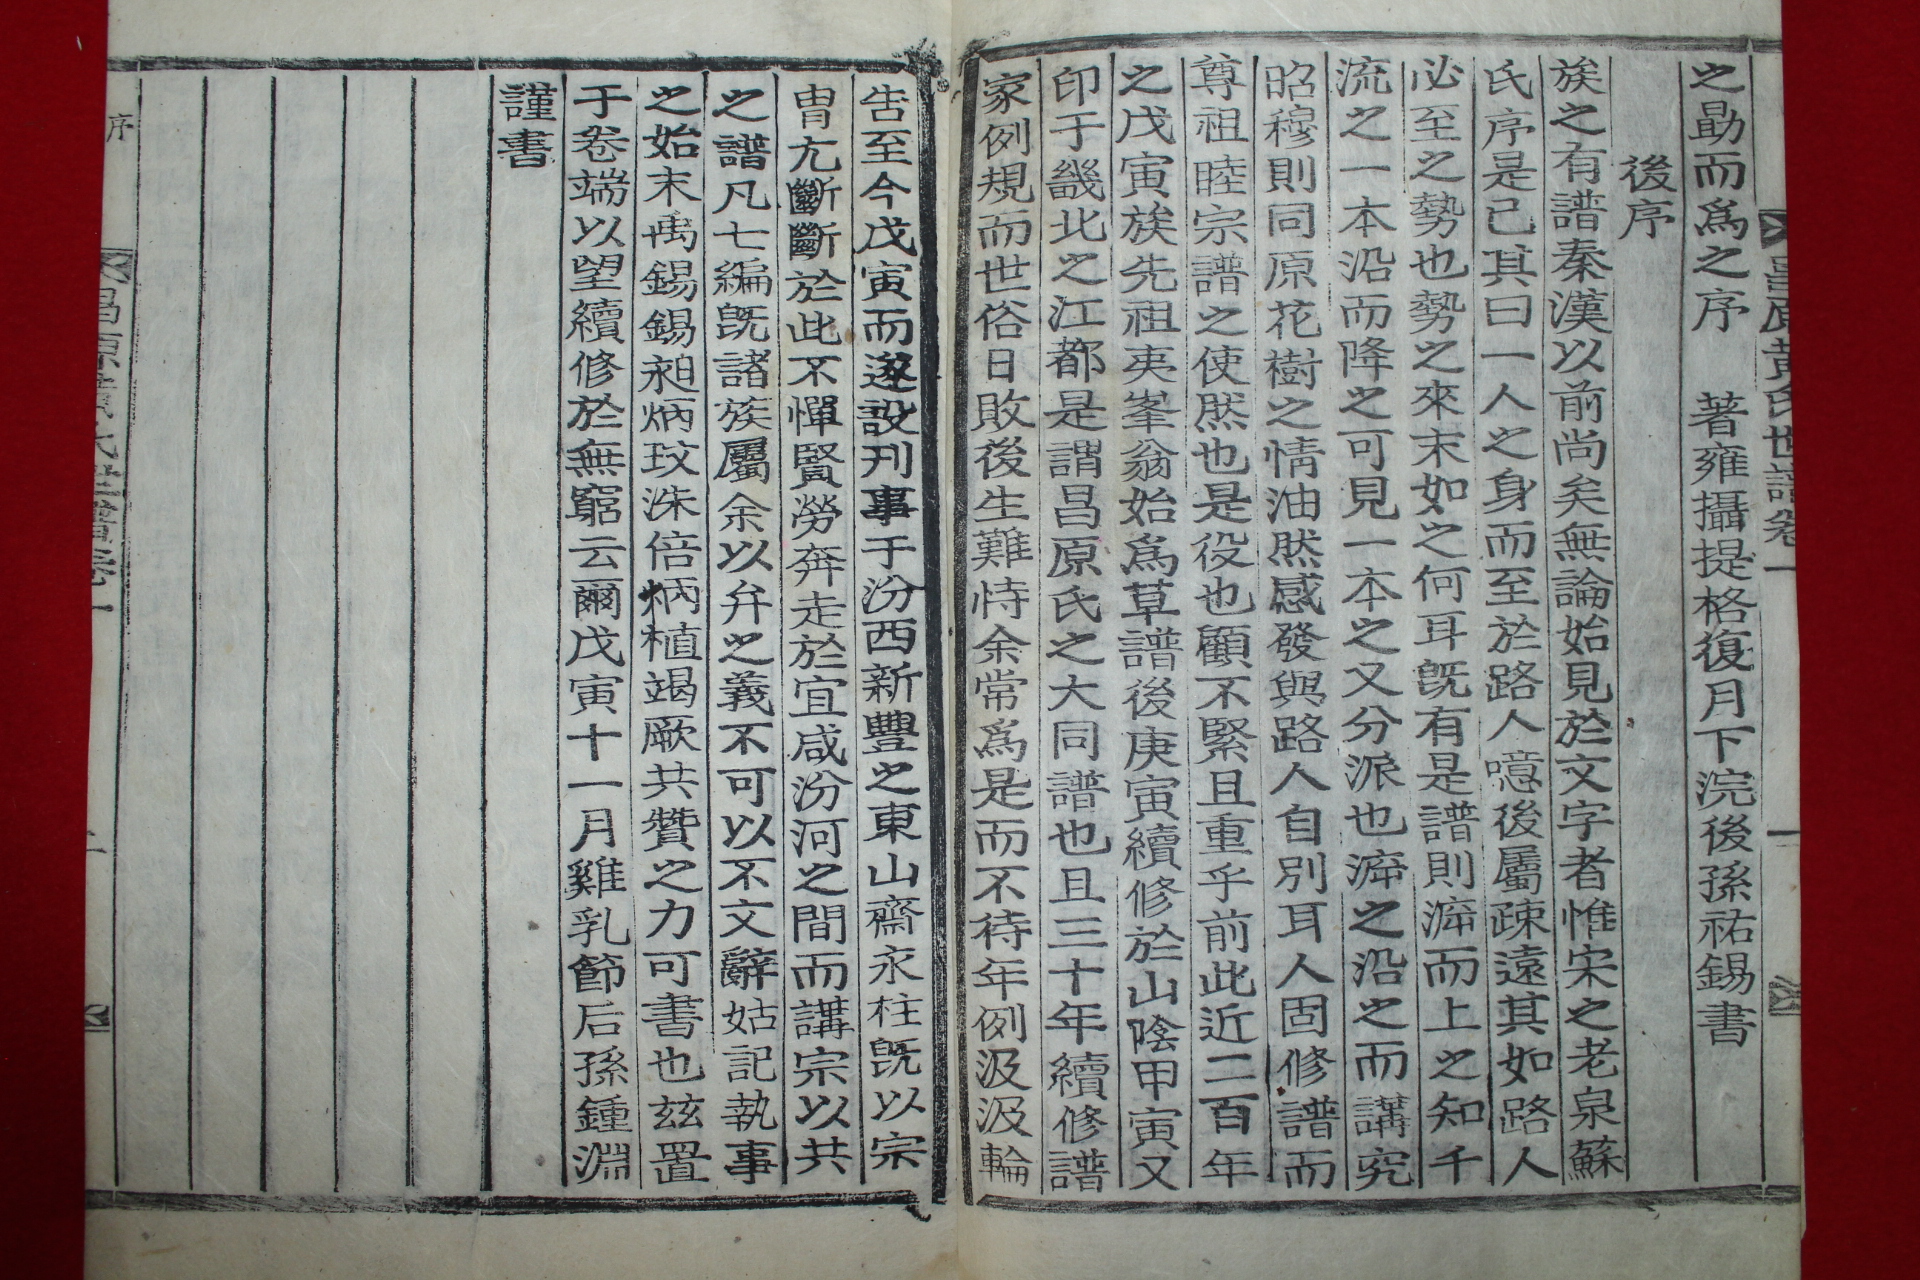 之勖而爲之序 著雍攝提格復月下浣後孫祐錫書
後序
族之有譜秦漢以前尚矣無論始見於文字者惟宋之老泉蘇
氏序是已其曰一人之身而至於路人噫後屬疎遠其如路人
必至之勢也勢之來末如之何耳旣有是譜則泝而上之知千
流之一本沿而降之可見一本之又分派也泝之沿之而講究
昭穆則同原花樹之情油然感發與路人自別耳人固修譜而
尊祖睦宗譜之使然也是役也顧不緊且重乎前此近二百年
之戊寅族先祖夷峯翁始爲草譜後庚寅續修於山陰甲寅又
印于畿北之江都是謂昌原氏之大同譜也且三十年續修譜
家例規而世俗日敗後生難恃余常爲是而不待年例汲汲輪
告至今戊寅而遂設刋事于汾西新豐之東山齋永柱旣以宗
冑亢斷斷於此不憚賢勞奔走於宜咸汾河之間而講宗以共
之譜凡七編旣諸族屬余以弁之義不可以不文辭姑記執事
之始末禹錫錫昶炳玟洙倍炳植竭厥共贊之力可書也玆置
于卷端以望續修於無窮云爾戊寅十一月雞乳節后孫鍾淵
謹書
昌原黃氏世譜卷一
序
昌原黃氏世譜卷一
一
二